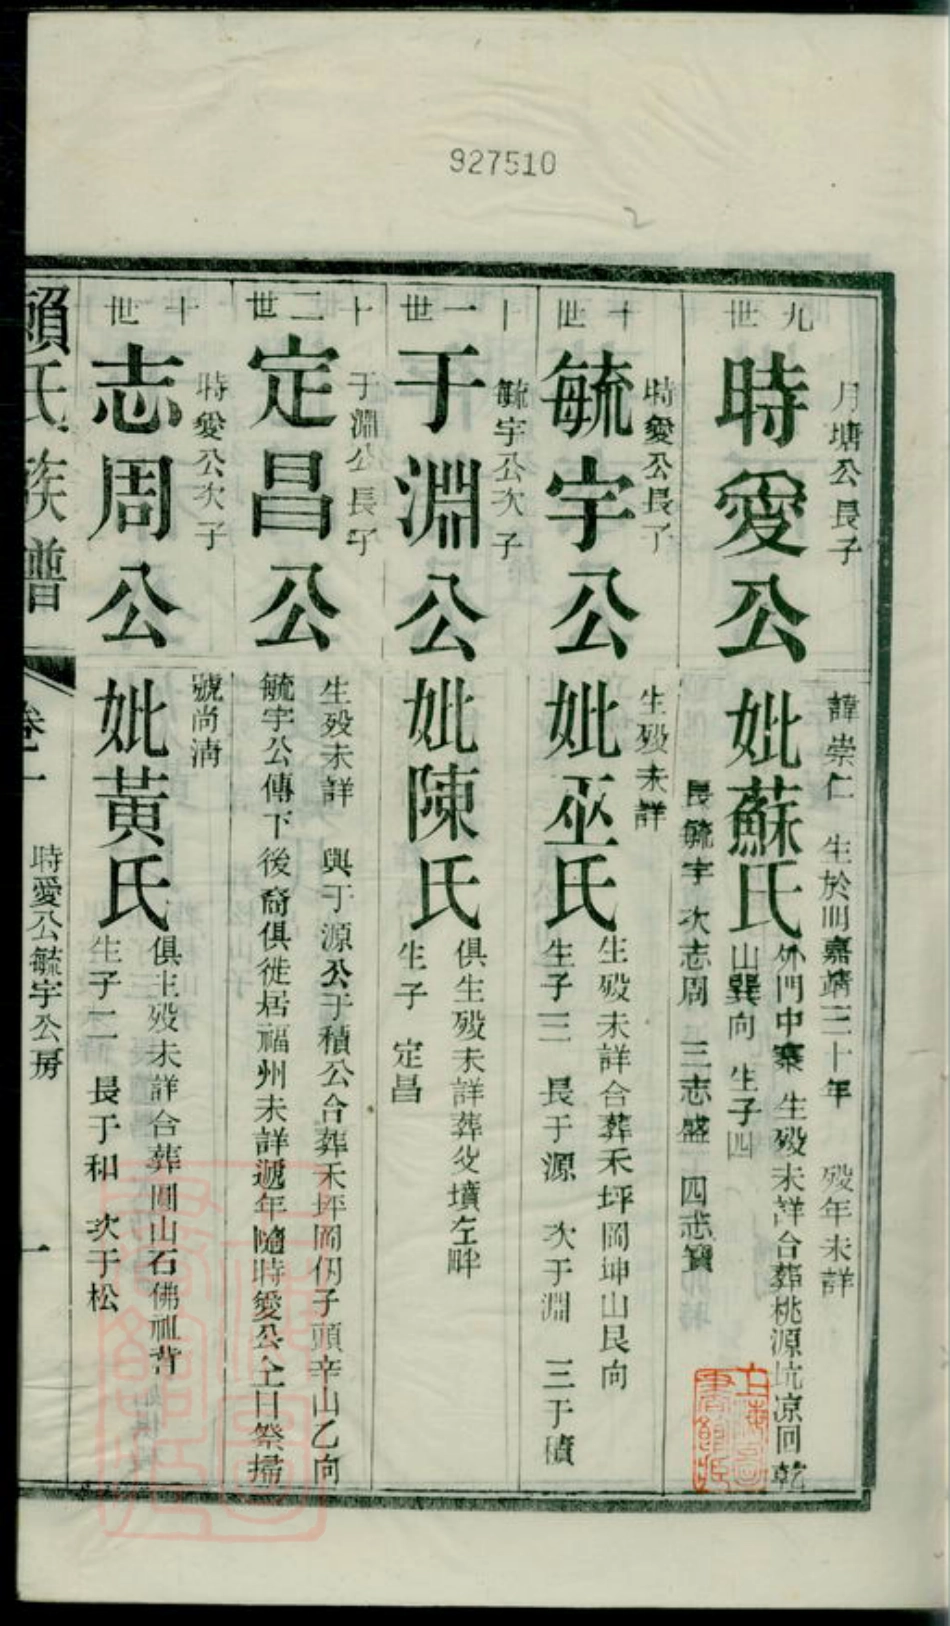 927510
2
九世
月塘公長子
時愛公
諱崇仁 生於明嘉靖三十年 歿年未詳
妣蘇氏
外門中寨 生歿未詳合葬桃源坑凉回乾
山巽向 生子四
長毓宇 次志周 三志盛 四志寶
十世
時愛公長子
毓宇公
生歿未詳
妣巫氏
生歿未詳合葬禾坪岡坤山艮向
生子三 長于源 次于淵 三于積
十一世
毓宇公次子
于淵公
妣陳氏
俱生歿未詳葬父墳左畔
生子 定昌
十二世
于淵公長子
定昌公
生歿未詳 與于源公于積公合葬禾坪岡仂子頭辛山乙向
毓宇公傳下後裔俱徙居福州未詳遞年隨時愛公仝日祭掃
十世
時愛公次子
志周公
號尚淸
妣黃氏
俱生歿未詳合葬圓山石佛祖背
生子二 長于和 次于松
賴氏族譜
卷一
時愛公毓宇公房
一